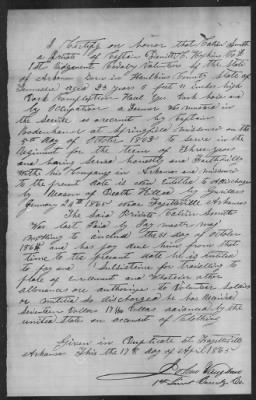 I Certify on honor that Calvin Smith
a Private of Captain Hopkins Co
1st Regiment Cavalry Volunteers of the State
of Arkansas Born in Hawkins County State of
Tennessee aged 23 years 6 feet inches high
Dark Complexion Hazel Eyes Dark hair and
by Occupation a Farmer was mustered in
the service as a recruit by Captain
at Springfield Missouri on the
5th day of October 1863 to serve in the
Regiment for the term of three years
and having served honestly and Faithfully
with his Company in Arkansas and Missouri
to the present date is now Entitled to a discharge
by reason of Death Killed by
January 24th 1865 near Fayetteville Arkansas
The Said Private Calvin Smith
was last paid by Pay master
to include the 31 day of October
1864 and has pay due him from that
time to the present date he is entitled
to pay and Subsistence for traveling to
place of enrollment and Whatever other
allowances are authorized to Volunteer Soldiers
or Militia so discharged he has Received
Seventeen Dollars advanced by the
United States on account of Clothing
Given in Duplicate at Fayetteville
Arkansas this the 17th day of April 1865
1st Lieut Comdg Co